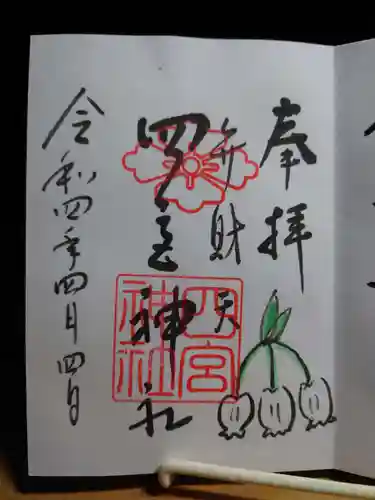 奉拝
弁財天
四宮神社
四宮
神社
令和四年四月四日